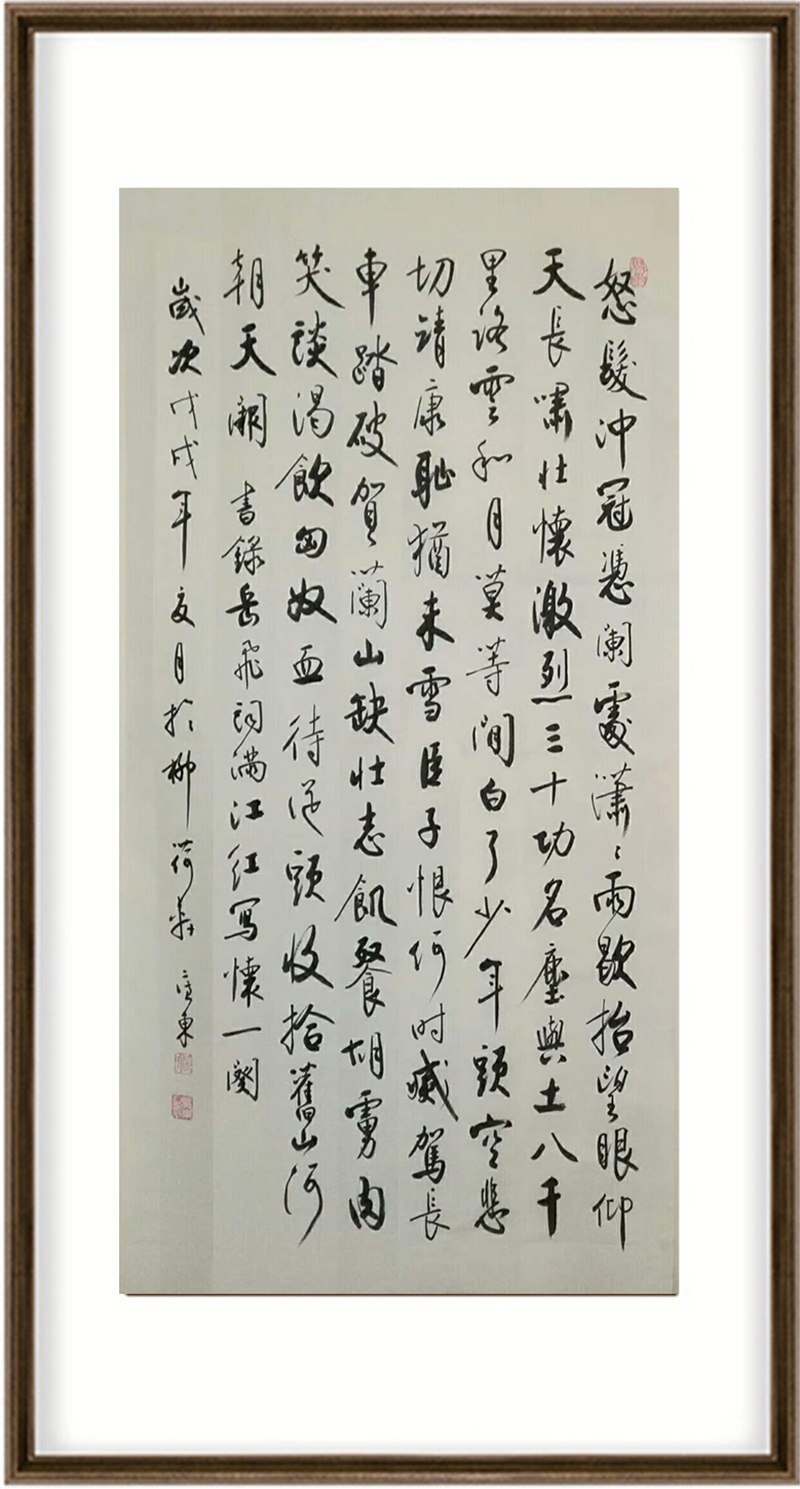 怒髮冲冠憑闌處瀟〻雨歇抬望眼仰
天長嘯壯懷激烈三十功名塵與土八千
里路雲和月莫等閒白了少年頭空悲
切靖康恥猶未雪臣子恨何時滅駕長
車踏破賀蘭山缺壯志飢餐胡虜肉
笑談渴飲匈奴血待從頭收拾舊山河
朝天闕 書錄岳飛詞滿江紅寫懷一闋
歲次戊戌年夏月於柳荷軒 東